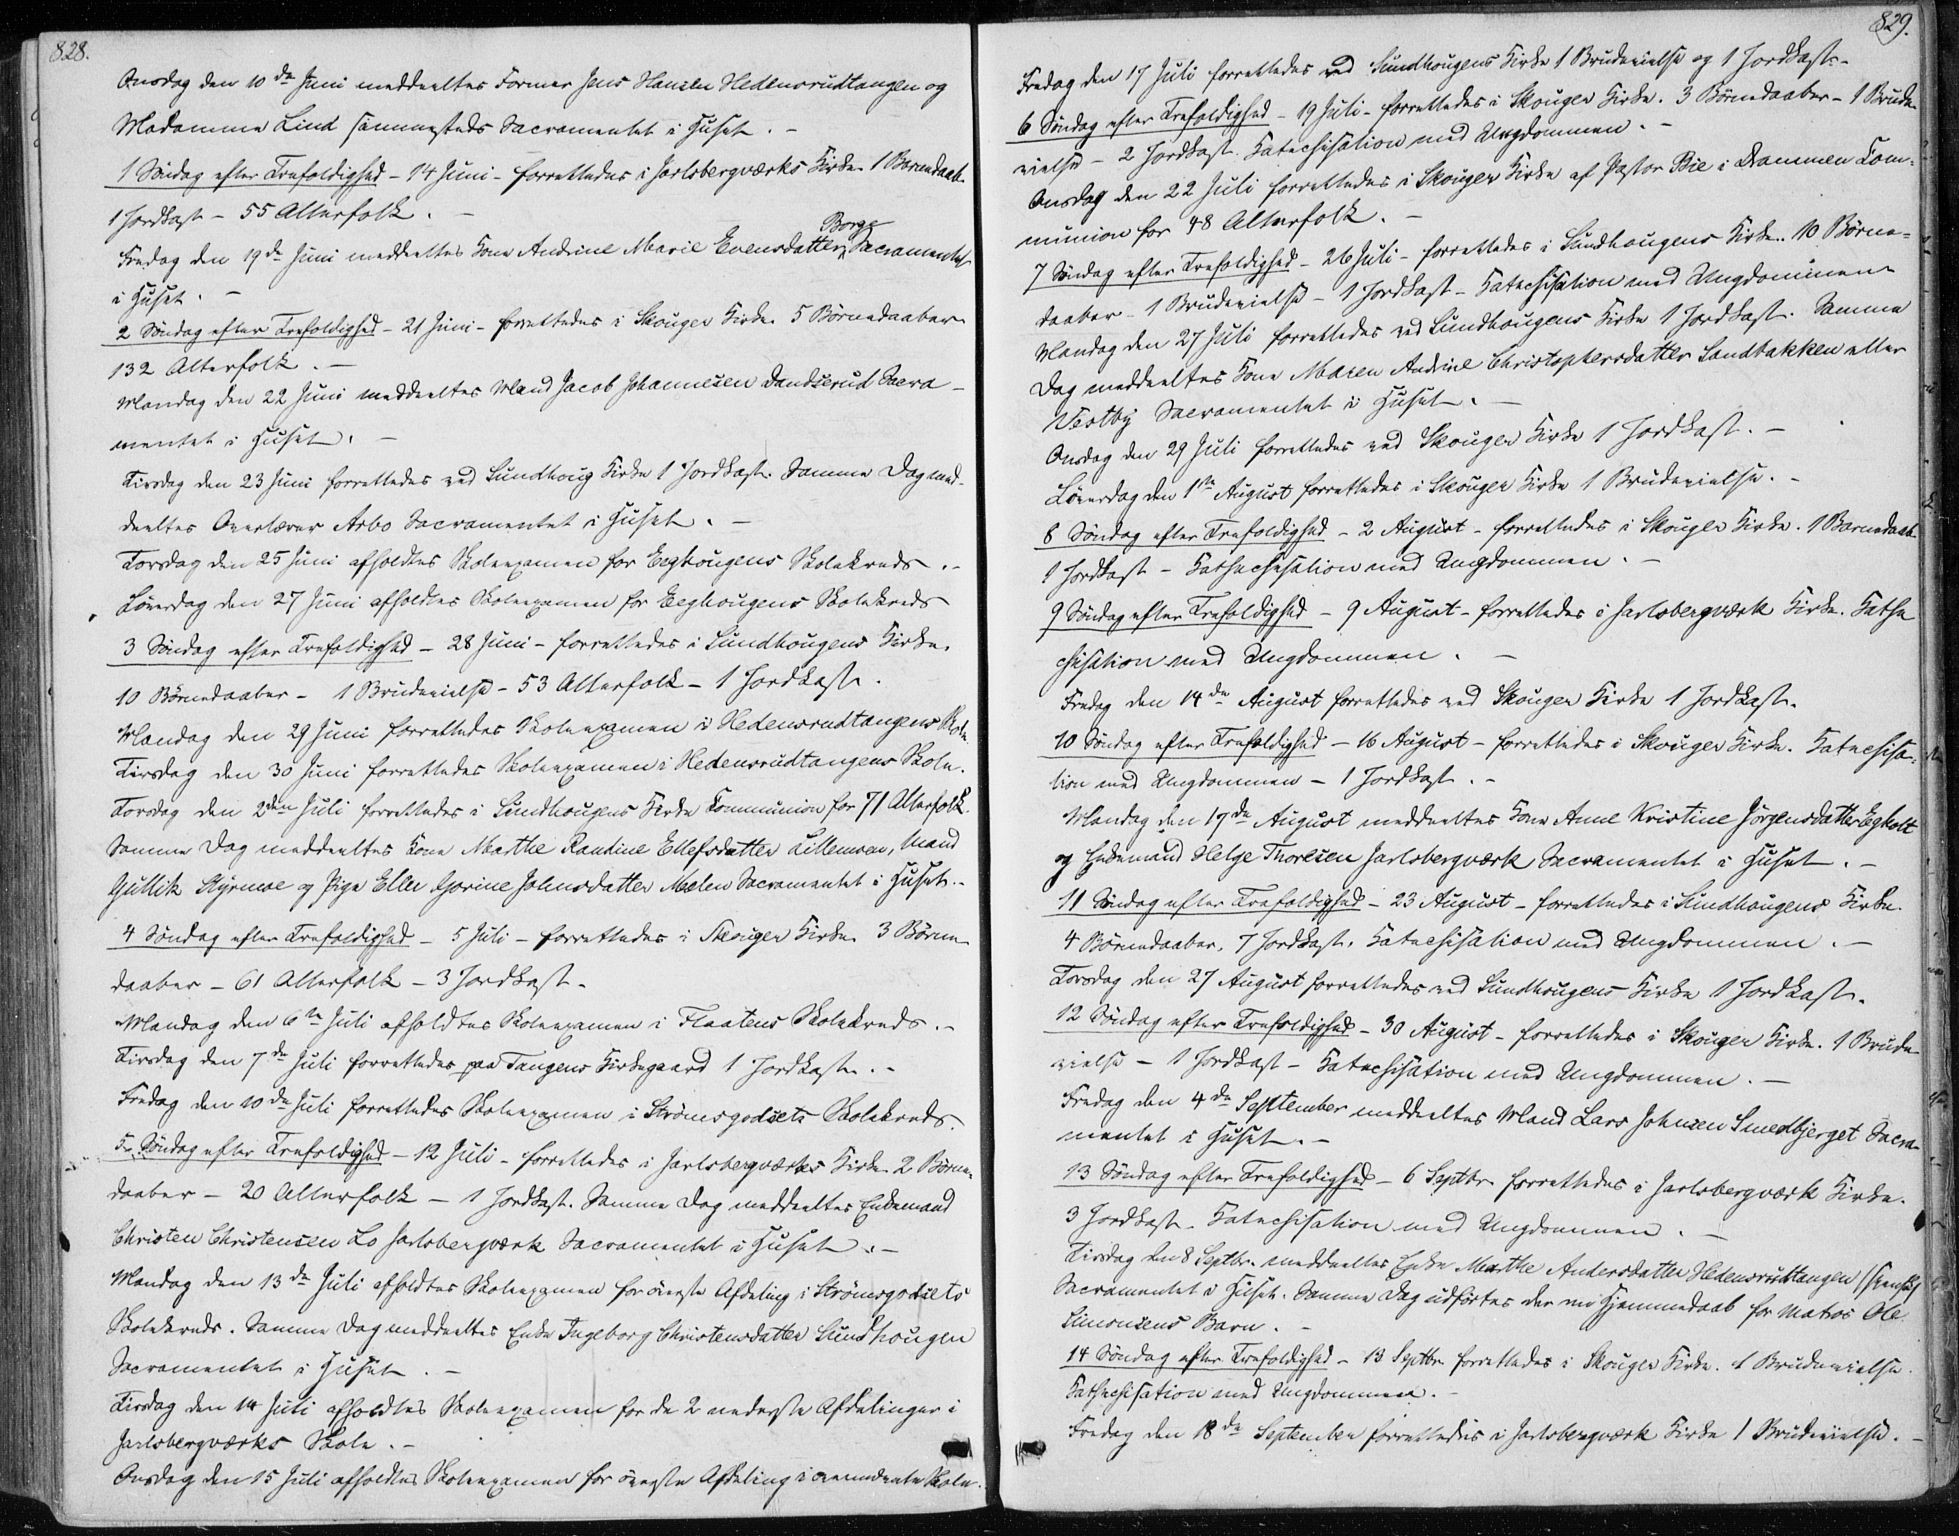 828.
Onsdag den 10de Juni meddeeltes Former Jens Hansen Hedensrudtangen og
Madamme Lind sammesteds Sacramentet i Huset. -
1 Søndag efter Trefoldighed - 14 Juni - forrettedes i Jarlsbergværks Kirke 1 Barnedaab
1 Jordkast - 55 Alterfolk. -
Borge
Fredag den 19de Juni meddeeltes Kone Andrine Marie Evensdatter Sacramentet
i Huset. -
2 Søndag efter Trefoldighed - 21 Juni - forrettedes i Skouger Kirke 5 Børnedaaber
132 Alterfolk. -
Mandag den 22 Juni meddeeltes Mand Jacob Johannesen Dandserud Sacra-
mentet i Huset. -
Tirsdag den 23 Juni forrettedes ved Sundhoug Kirke 1 Jordkast. Samme Dag med-
deeltes Overlærer Arbo Sacramentet i Huset. -
Torsdag den 25 Juni afholdtes Skoleexamen for Eeghougens Skolekreds. -
Løverdag den 27 Juni afholdtes Skoleexamen for Eeghougens Skolekreds
3 Søndag efter Trefoldighed - 28 Juni - forrettedes i Sundhougens Kirke.
10 Børnedaaber - 1 Brudevielse - 53 Alterfolk - 1 Jordkast.
Mandag den 29 Juni forrettedes Skoleexamen i Hedensrudtangens Skole
Tirsdag den 30 Juni forrettedes Skoleexamen i Hedensrudtangens Skole.
Torsdag den 2den Juli forrettedes i Sundhougens Kirke Communion for 71 Alterfolk.
Samme Dag meddeeltes Kone Marthe Randine Ellefsdatter Lillemoen, Mand
Gullik Styrmoe og Pige Elle Gorine Johnsdatter Moelen Sacramentet i Huset. -
4 Søndag efter Trefoldighed - 5 Juli - forrettedes i Skouger Kirke 3 Børne-
daaber - 61 Alterfolk - 3 Jordkast.
Mandag den 6te Juli afholdtes Skoleexamen i Flaatens Skolekreds. -
Tirsdag den 7de Juli forrettedes paa Tangens Kirkegaard 1 Jordkast. -
Fredag den 10de Juli forrettedes Skoleexamen i Strømsgodsets Skolekreds.
5. Søndag efter Trefoldighed - 12 Juli - forrettedes i Jarlsbergværkes Kirke 2 Børne-
daaber - 20 Alterfolk - 1 Jordkast. Samme Dag meddeeltes Enkemand
Christen Christensen Lo Jarlsbergværk Sacramentet i Huset. -
Mandag den 13de Juli afholdtes Skoleexamen for øverste Afdeling i Strømsgodsets
Skolekreds. Samme Dag meddeeltes Enke Ingeborg Christensdatter Sundhougen
Sacramentet i Huset. -
Tirsdag den 14 Juli afholdtes Skoleexamen for de 2 nederste Afdelinger i
Jarlsbergværks Skole. -
Onsdag den 15 Juli afholdtes Skoleexamen for øverste Afdeling i Skole.
829.
Fredag den 17 Juli forrettedes ved Sundhougens Kirke 1 Brudevielse og 1 Jordkast. -
6 Søndag efter Trefoldighed - 19 Juli - forrettedes i Skouger Kirke. 3 Børnedaaber - 1 Brude-
vielse - 2 Jordkast. Katechisation med Ungdommen. -
Onsdag den 22 Juli forrettedes i Skouger Kirke af Pastor Bie i Drammen Com-
munion for 48 Alterfolk. -
7 Søndag efter Trefoldighed - 26 Juli - forrettedes i Sundhougens Kirke. 10 Børne-
daaber - 1 Brudevielse - 1 Jordkast - Katechisation med Ungdommen
Mandag den 27 Juli forrettedes ved Sundhougens Kirke 1 Jordkast. Samme
Dag meddeeltes Kone Maren Andrine Christophersdatter Sandbakken eller
Vestby Sacramentet i Huset. -
Onsdag den 29 Juli forrettedes ved Skouger Kirke 1 Jordkast. -
Løverdag den 1ste August forrettedes i Skouger Kirke 1 Brudevielse. -
8 Søndag efter Trefoldighed - 2 August - forrettedes i Skouger Kirke. 1 Barnedaab
1 Jordkast - Kathechisation med Ungdommen. -
9 Søndag efter Trefoldighed - 9 August - forrettedes i Jarlsbergværk Kirke. Kathe
chisation med Ungdommen. -
Fredag den 14de August forrettedes ved Skouger Kirke 1 Jordkast.
10 Søndag efter Trefoldighed - 16 August - forrettedes i Skouger Kirke. Katechisa-
tion med Ungdommen - 1 Jordkast. -
Mandag den 17de August meddeeltes Kone Anne Kristine Jørgensdatter Egholt
og Enkemand Helge Thoresen Jarlsbergværk Sacramentet i Huset. -
11 Søndag efter Trefoldighed - 23 August - forrettedes i Sundhougens Kirke.
4 Børnedaaber. 7 Jordkast. Katechisation med Ungdommen. -
Torsdag den 27 August forrettedes ved Sundhougens Kirke 1 Jordkast.
12 Søndag efter Trefoldighed - 30 August - forrettedes i Skouger Kirke. 1 Brude-
vielse - 1 Jordkast - Katechisation med Ungdommen. -
Fredag den 4de September meddeeltes Mand Lars Johnsen Smedbjerget Sacra-
mentet i Huset. -
13 Søndag efter Trefoldighed - 6 Septbr. forrettedes i Jarlsbergværk Kirke.
3 Jordkast. Katechisation med Ungdommen. -
Tirsdag den 8 Septbr. meddeeltes Enke Marthe Andersdatter Hedensrudtangen
Sacramentet i Huset. Samme Dag udførtes der en Hjemmedaab for Matros Ole
Simonsens Barn. -
14 Søndag efter Trefoldighed - 13 Septbr. forrettedes i Skouger Kirke. 1 Brudevielse.
Kathechisation med Ungdommen. -
Fredag den 18de September forrettedes i Jarlsbergværk Kirke 1 Brudevielse. -